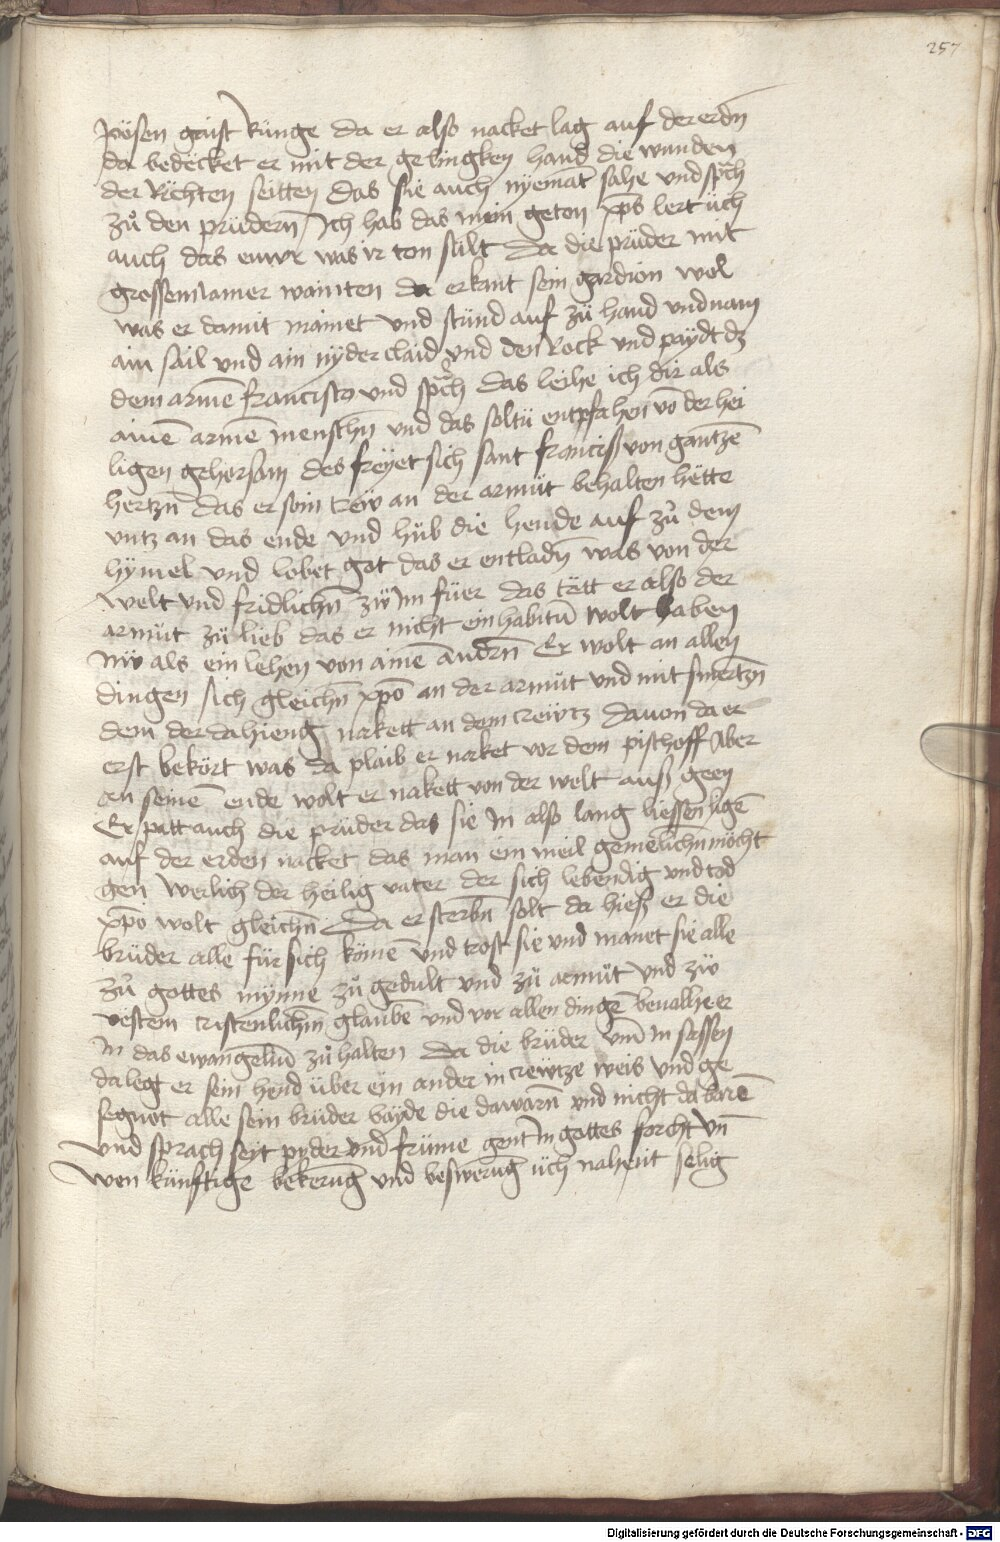 257
pösen gaist künge da er also nacket lag auf der erdn̄
da bedecket er mit der gelingken hand die wunden
der Rechten seitten das sie auch nyemāt sahe und sp̄ch
zů den prüdern̄ Ich hab das mein geton xp̄s lert üch
auch das ewr was ir ton sült Da die prüder mit
grossem Iamer wainten da erkant sein gardion wol
was er damit mainet und stünd auf zü hand und nam
ain sail und ain nyder claid und den Rock und paydt dz
dem armē francisco und sp̄ch das leihe ich dir als
ainē armē menschn̄ und das soltü entpfahen vō der hei
ligen gehorsam des freyet sich sant franciss von gantzē
hertzn̄ das er sein trew an der armüt behalten hette
vntz an das ende und hüb die hende auf zů dem
hymel und lobet got das er entladn̄ was von der
welt und fridlichn̄ zů Im füer das tett er also der
armüt zü lieb das er nicht ein habitū wolt haben
nw als ein lehen von ainē andrn̄ Er wolt an allen
dingen sich gleichn̄ xp̄o an der armüt und mit smertzn̄
dem der da hieng nakett an dem crewtz dauon da er
erst bekört was da plaib er naket vor dem pischoff Aber
an seinē ende wolt er nakett von der welt auß geen
Er patt auch die prüder das sie In also lang liessen ligē
auf der erden nacket das man ein meil gemelichn̄ möcht
gen werlich der heilig vater der sich lebendig und tod
xp̄o wolt gleichn̄ Da er sterbn̄ solt da hieß er die
brüder alle für sich kömē und trost sie und manet sie alle
zů gottes mynne zů gedult und zü armüt und zů
vestem cristenlichm̄ glaubē und vor allen dingē beualhe er
In das ewangeliū zů halten Da die brüder vm̄ In sassen
da legt er sein hend über ein ander in crewtze weis und ge
segnot alle sein brüder bayde die da warn̄ und nicht da warē
und sprach seyt pyder und frümē gent In gottes forcht vn̄
wen künftige bekerūg und beswerūg üch nahent selig
Digitalisierung gefördert durch die Deutsche Forschungsgemeinschaft - DFG